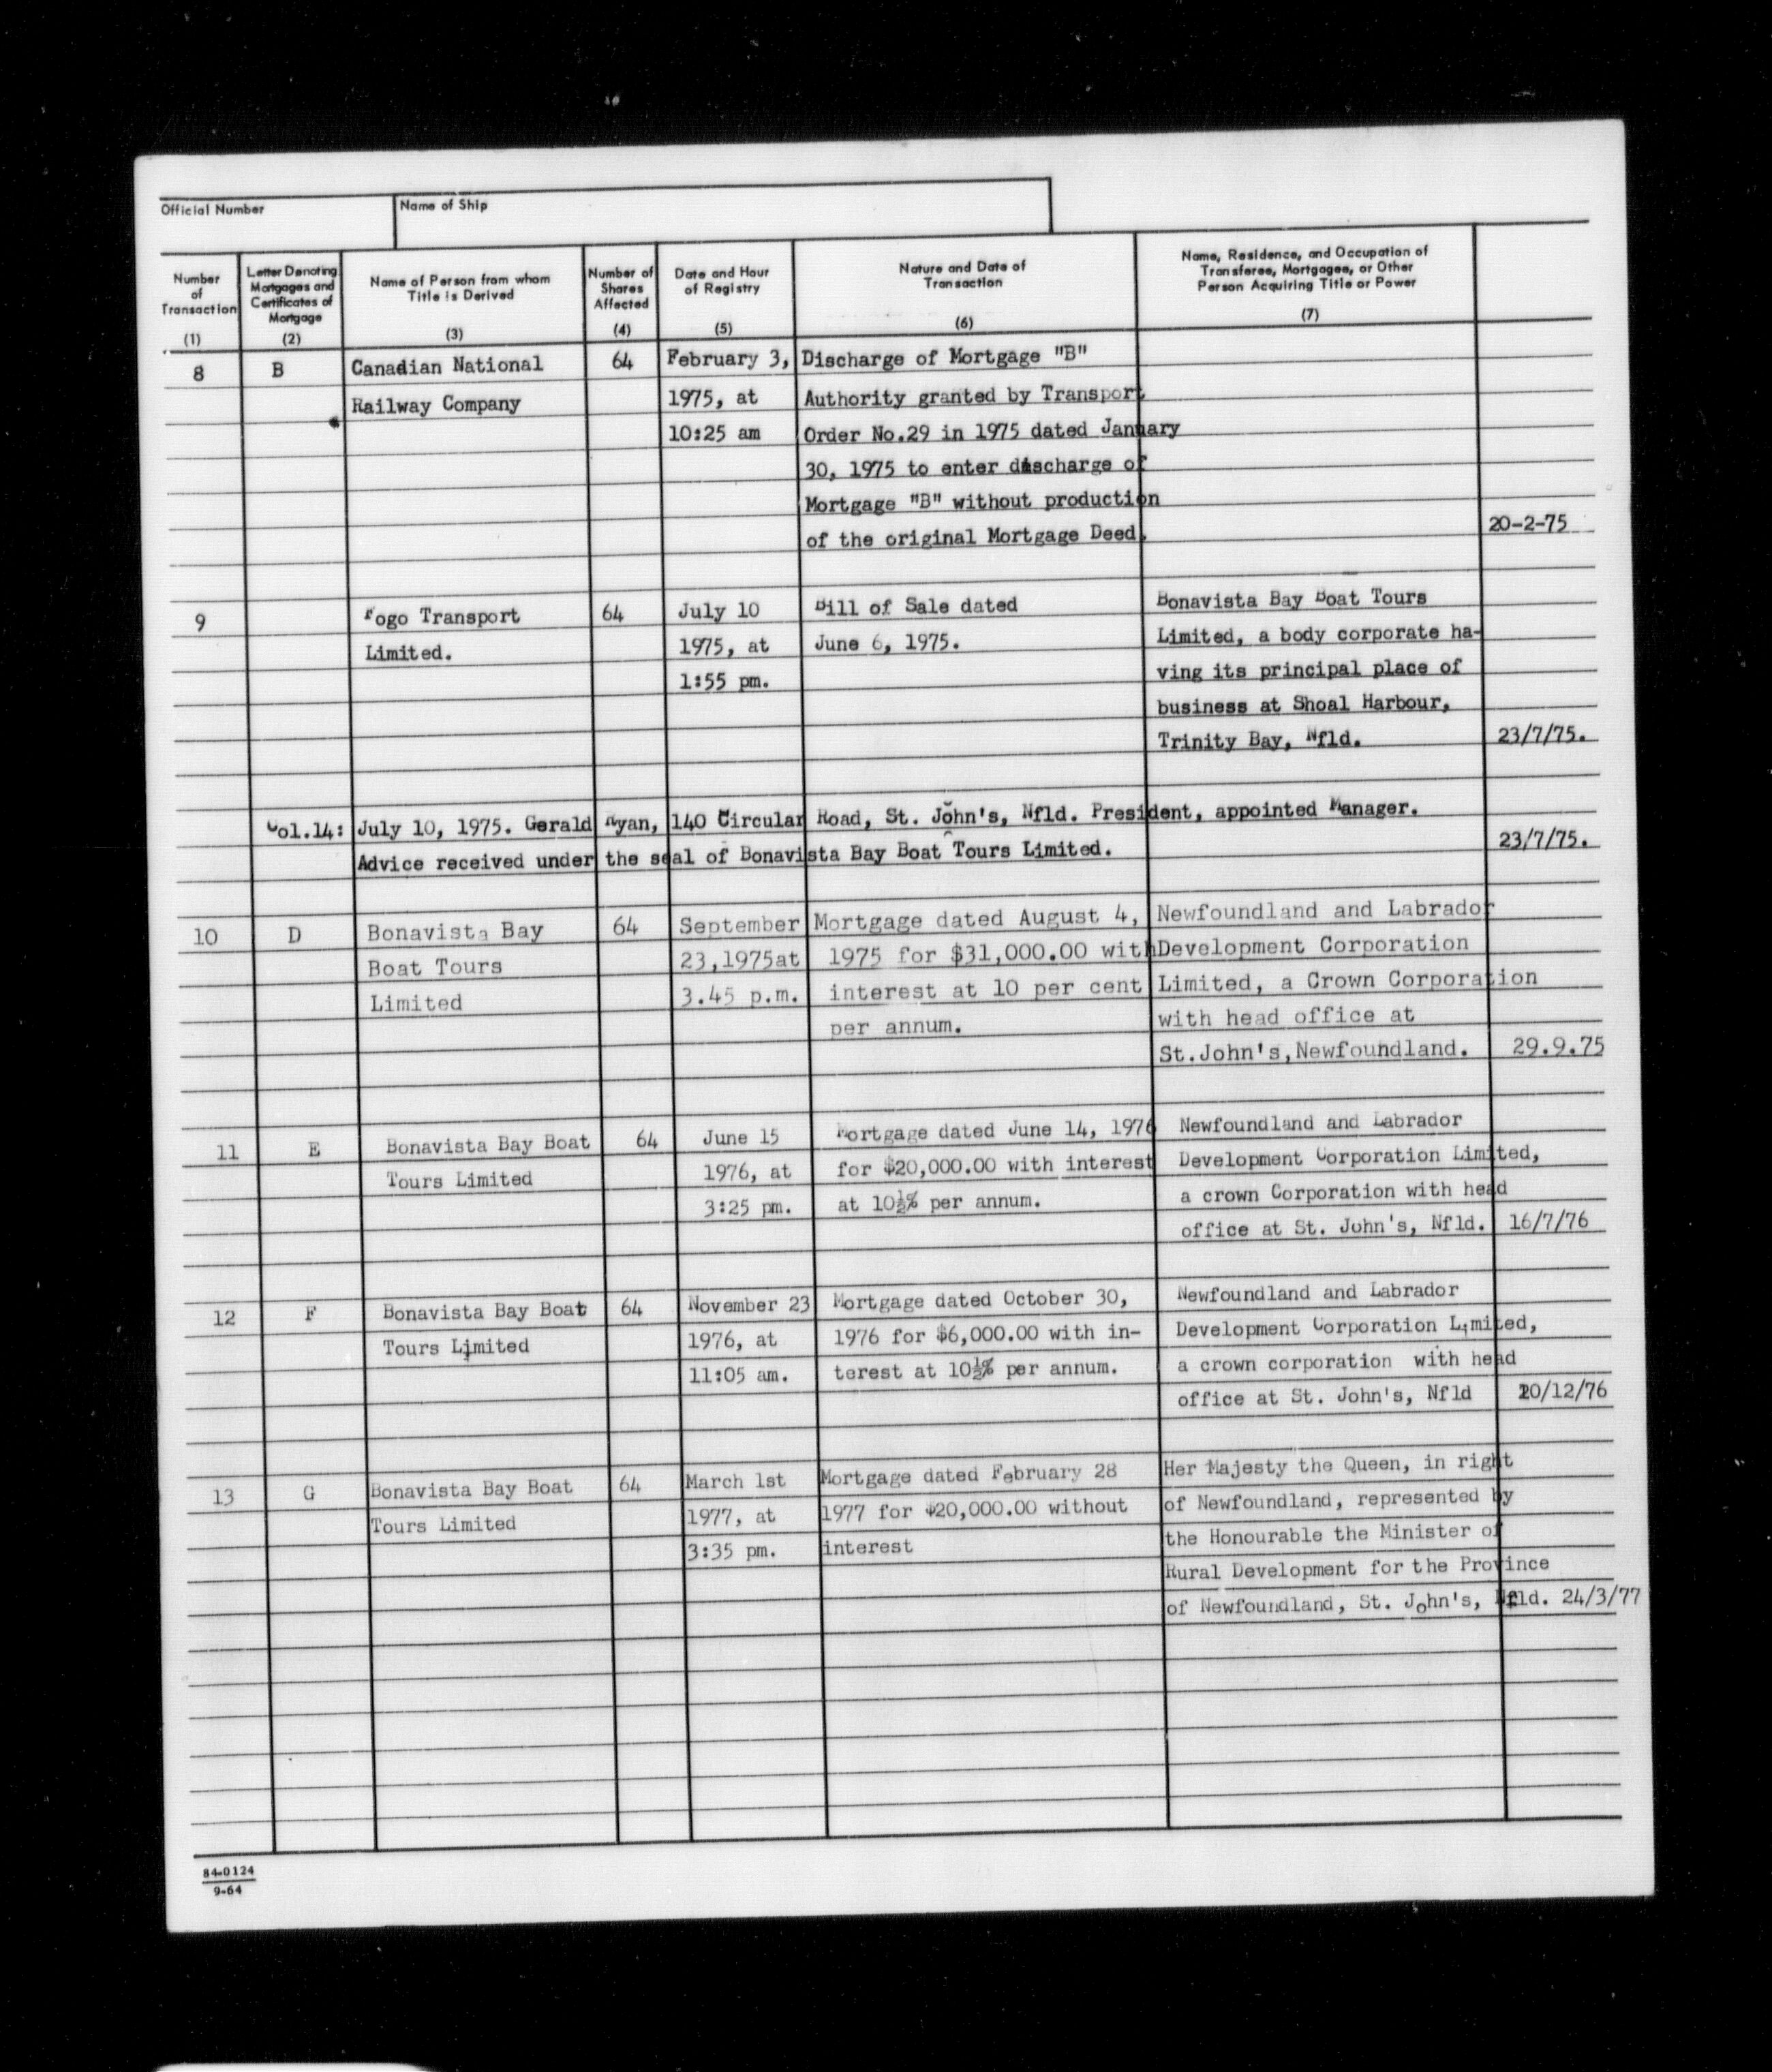 Official Number
Name of Ship
Number of Transaction (1)
Letter Denoting Mortgages and Certificates of Mortgage (2)
Name of Person from whom Title is Derived (3)
Number of Shares Affected (4)
Date and Hour of Registry (5)
Nature and Date of Transaction (6)
Name, Residence, and Occupation of Transferee, Mortgagee, or Other Person Acquiring Title or Power (7)
8 B Canadian National 64 February 3, Discharge of Mortgage "B"
Railway Company 1975, at Authority granted by Transport
10:25 am Order No.29 in 1975 dated January
30, 1975 to enter discharge of
Mortgage "B" without production
of the original Mortgage Deed. 20-2-75
9 Fogo Transport 64 July 10 Bill of Sale dated Bonavista Bay Boat Tours
Limited. 1975, at June 6, 1975. Limited, a body corporate ha-
1:55 pm. ving its principal place of
business at Shoal Harbour,
Trinity Bay, Nfld. 23/7/75.
Col.14: July 10, 1975. Gerald Ryan, 140 Circular Road, St. John's, Nfld. President, appointed Manager.
Advice received under the seal of Bonavista Bay Boat Tours Limited. 23/7/75.
10 D Bonavista Bay 64 September Mortgage dated August 4, Newfoundland and Labrador
Boat Tours 23,1975at 1975 for $31,000.00 with Development Corporation
Limited 3.45 p.m. interest at 10 per cent Limited, a Crown Corporation
per annum. with head office at
St.John's,Newfoundland. 29.9.75
11 E Bonavista Bay Boat 64 June 15 Mortgage dated June 14, 1976 Newfoundland and Labrador
Tours Limited 1976, at for $20,000.00 with interest Development Corporation Limited,
3:25 pm. at 10½% per annum. a crown Corporation with head
office at St. John's, Nfld. 16/7/76
12 F Bonavista Bay Boat 64 November 23 Mortgage dated October 30, Newfoundland and Labrador
Tours Limited 1976, at 1976 for $6,000.00 with in- Development Corporation Limited,
11:05 am. terest at 10½% per annum. a crown corporation with head
office at St. John's, Nfld 10/12/76
13 G Bonavista Bay Boat 64 March 1st Mortgage dated February 28 Her Majesty the Queen, in right
Tours Limited 1977, at 1977 for $20,000.00 without of Newfoundland, represented by
3:35 pm. interest the Honourable the Minister of
Rural Development for the Province
of Newfoundland, St. John's, Nfld. 24/3/77
84-0124
9-64